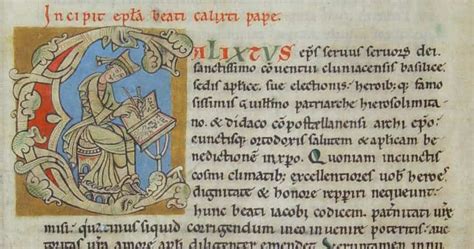 Incipit epła beati calixti pape.
CALIXTVS ep̄s seruus seruoꝝ dei.
sanctissimo cōuentui cluniacensis basilice
sedis aplice. sue electionis. heroib; q; famo
sissimis Guiłłmo patriarche hierosolimita
no. & didaco cōpostellanensi archi ep̄o
cunctisq; ortodoxis salutem & aplicam be
nedictionē in xpo. Quoniam in cunctis
cosmi climatib; excellentiores uob̄ heroes
dignitate & honore repperiri nequeunt
hunc beati iacobi codicem. paternitati ūre
misi. quatinus siquid corrigendum in eo inuenire poteritis. auc
toritas ūra amore apłi diligenter emendet. Secutamen